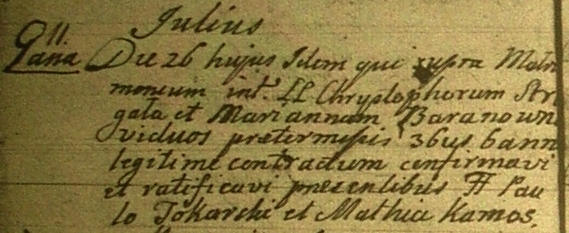 Julius
Die 26 hujus Idem qui supra Matri
moneum int. LL Chrystophorum Stry
gala et Mariannam Baranown
viduos prætermissis 3bus bann
legitime contractum confirmavi
et ratificavi presentibus FF Pau
lo Tokarchi et Mathia Kamos.